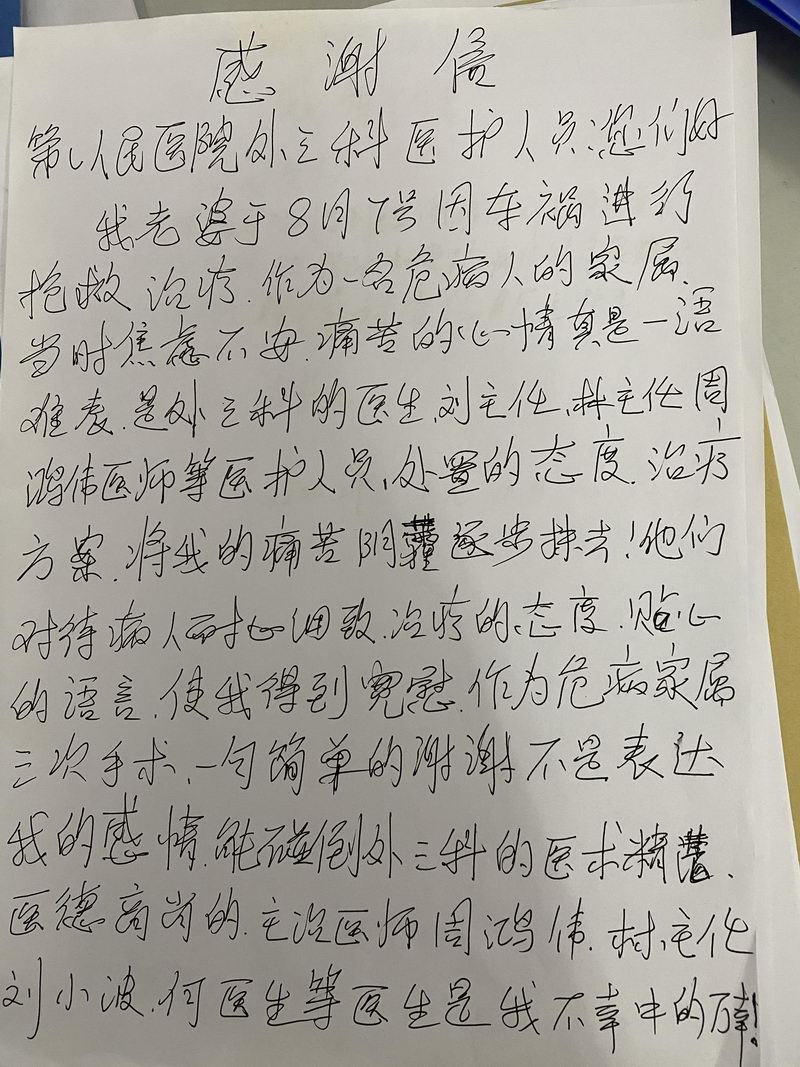 感谢信
第人民医院外三科医护人员:您们好
我老婆于8月7号因车祸进行
抢救治疗.作为一名危病人的家属.
当时焦虑不安.痛苦的心情真是一语
难表.是外三科的医生.刘主任.林主任周
鸿伟医师等医护人员,处置的态度.治疗
方案.将我的痛苦阴霾逐步抹去!他们
对待病人耐心细致.治疗的态度.贴心
的语言.使我得到宽慰.作为危病家属
三次手术.一句简单的谢谢不是表达
我的感情.能碰倒外三科的医术精.
医德高尚的.主治医师周鸿伟.林主任
刘小波.何医生等医生是我不幸中的万幸!